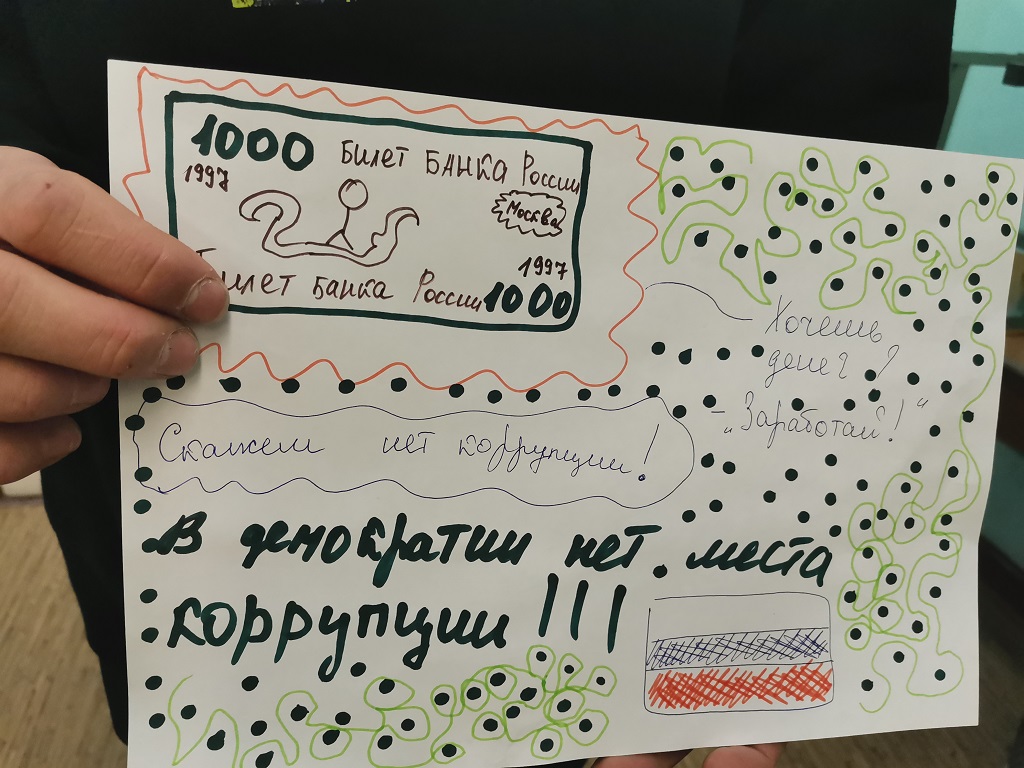 1000 Билет Банка России
1997
Москва
1997
Билет Банка России 1000
Хочешь
денег?
- „Заработай!“
Скажем нет коррупции!
В демократии нет места
коррупции!!!